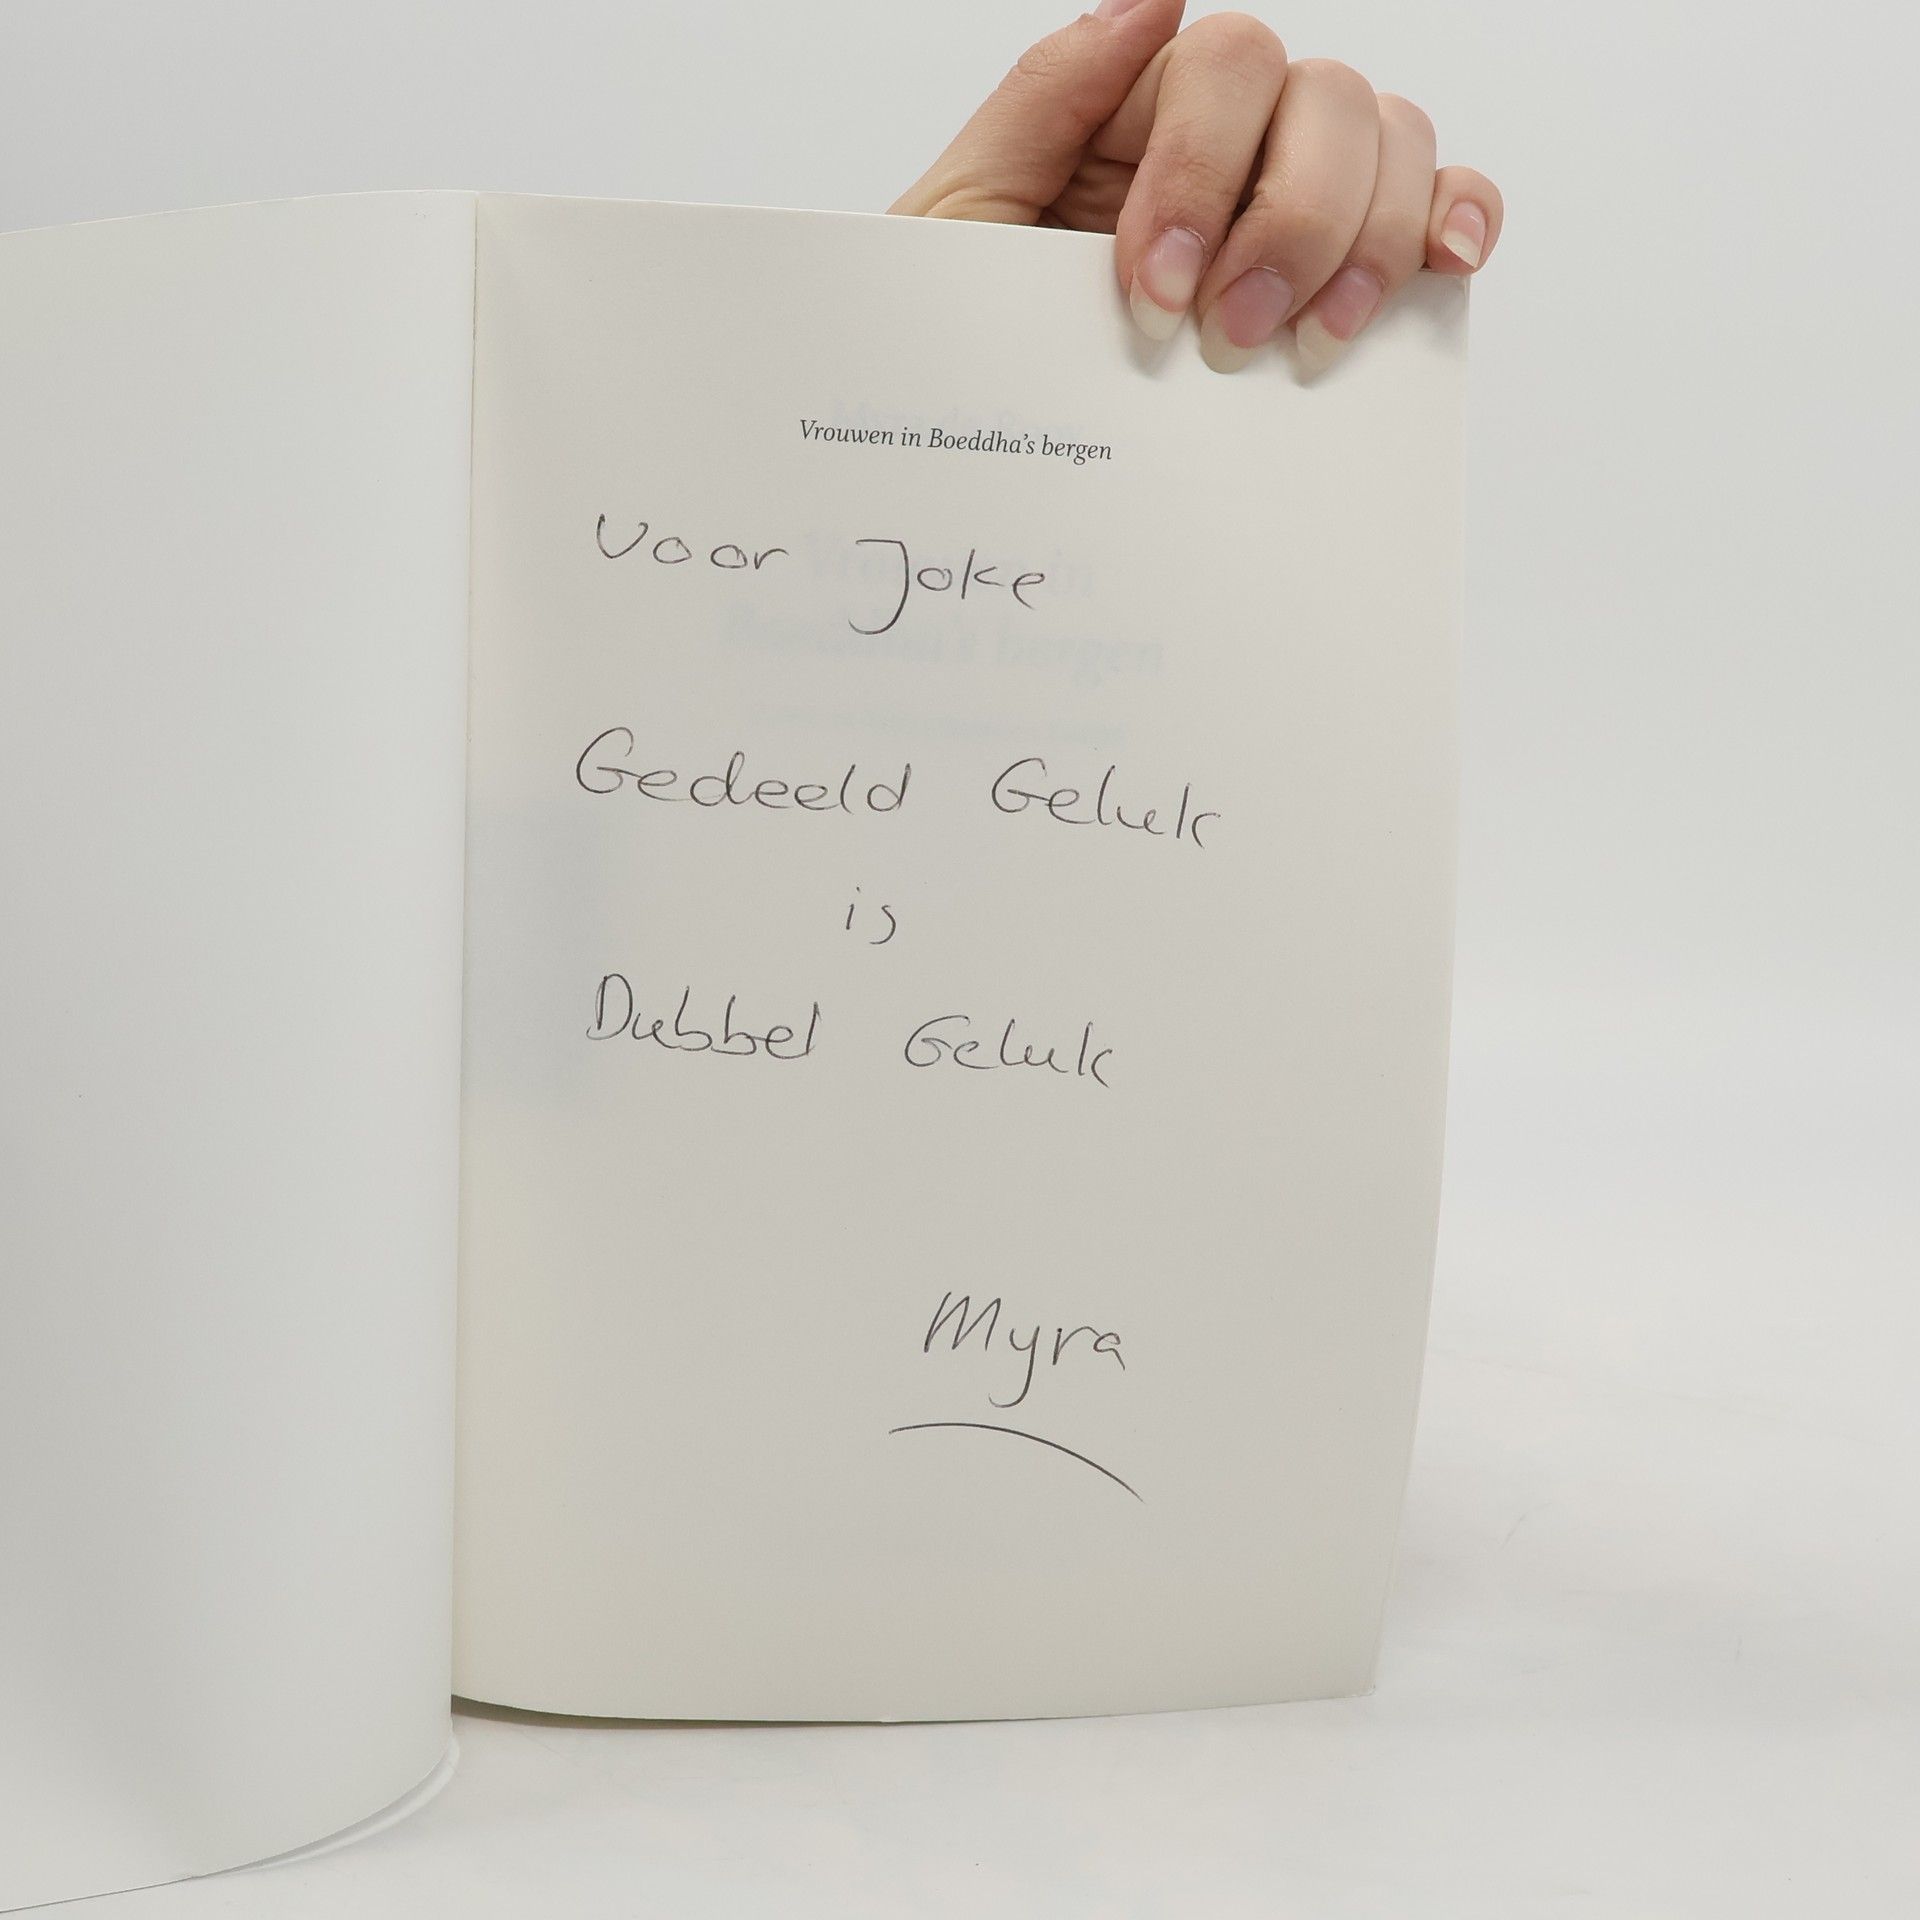 Vrouwen in Boeddha's bergen
Voor Joke
Gedeeld Geluk
is
Dubbel Geluk
Myra